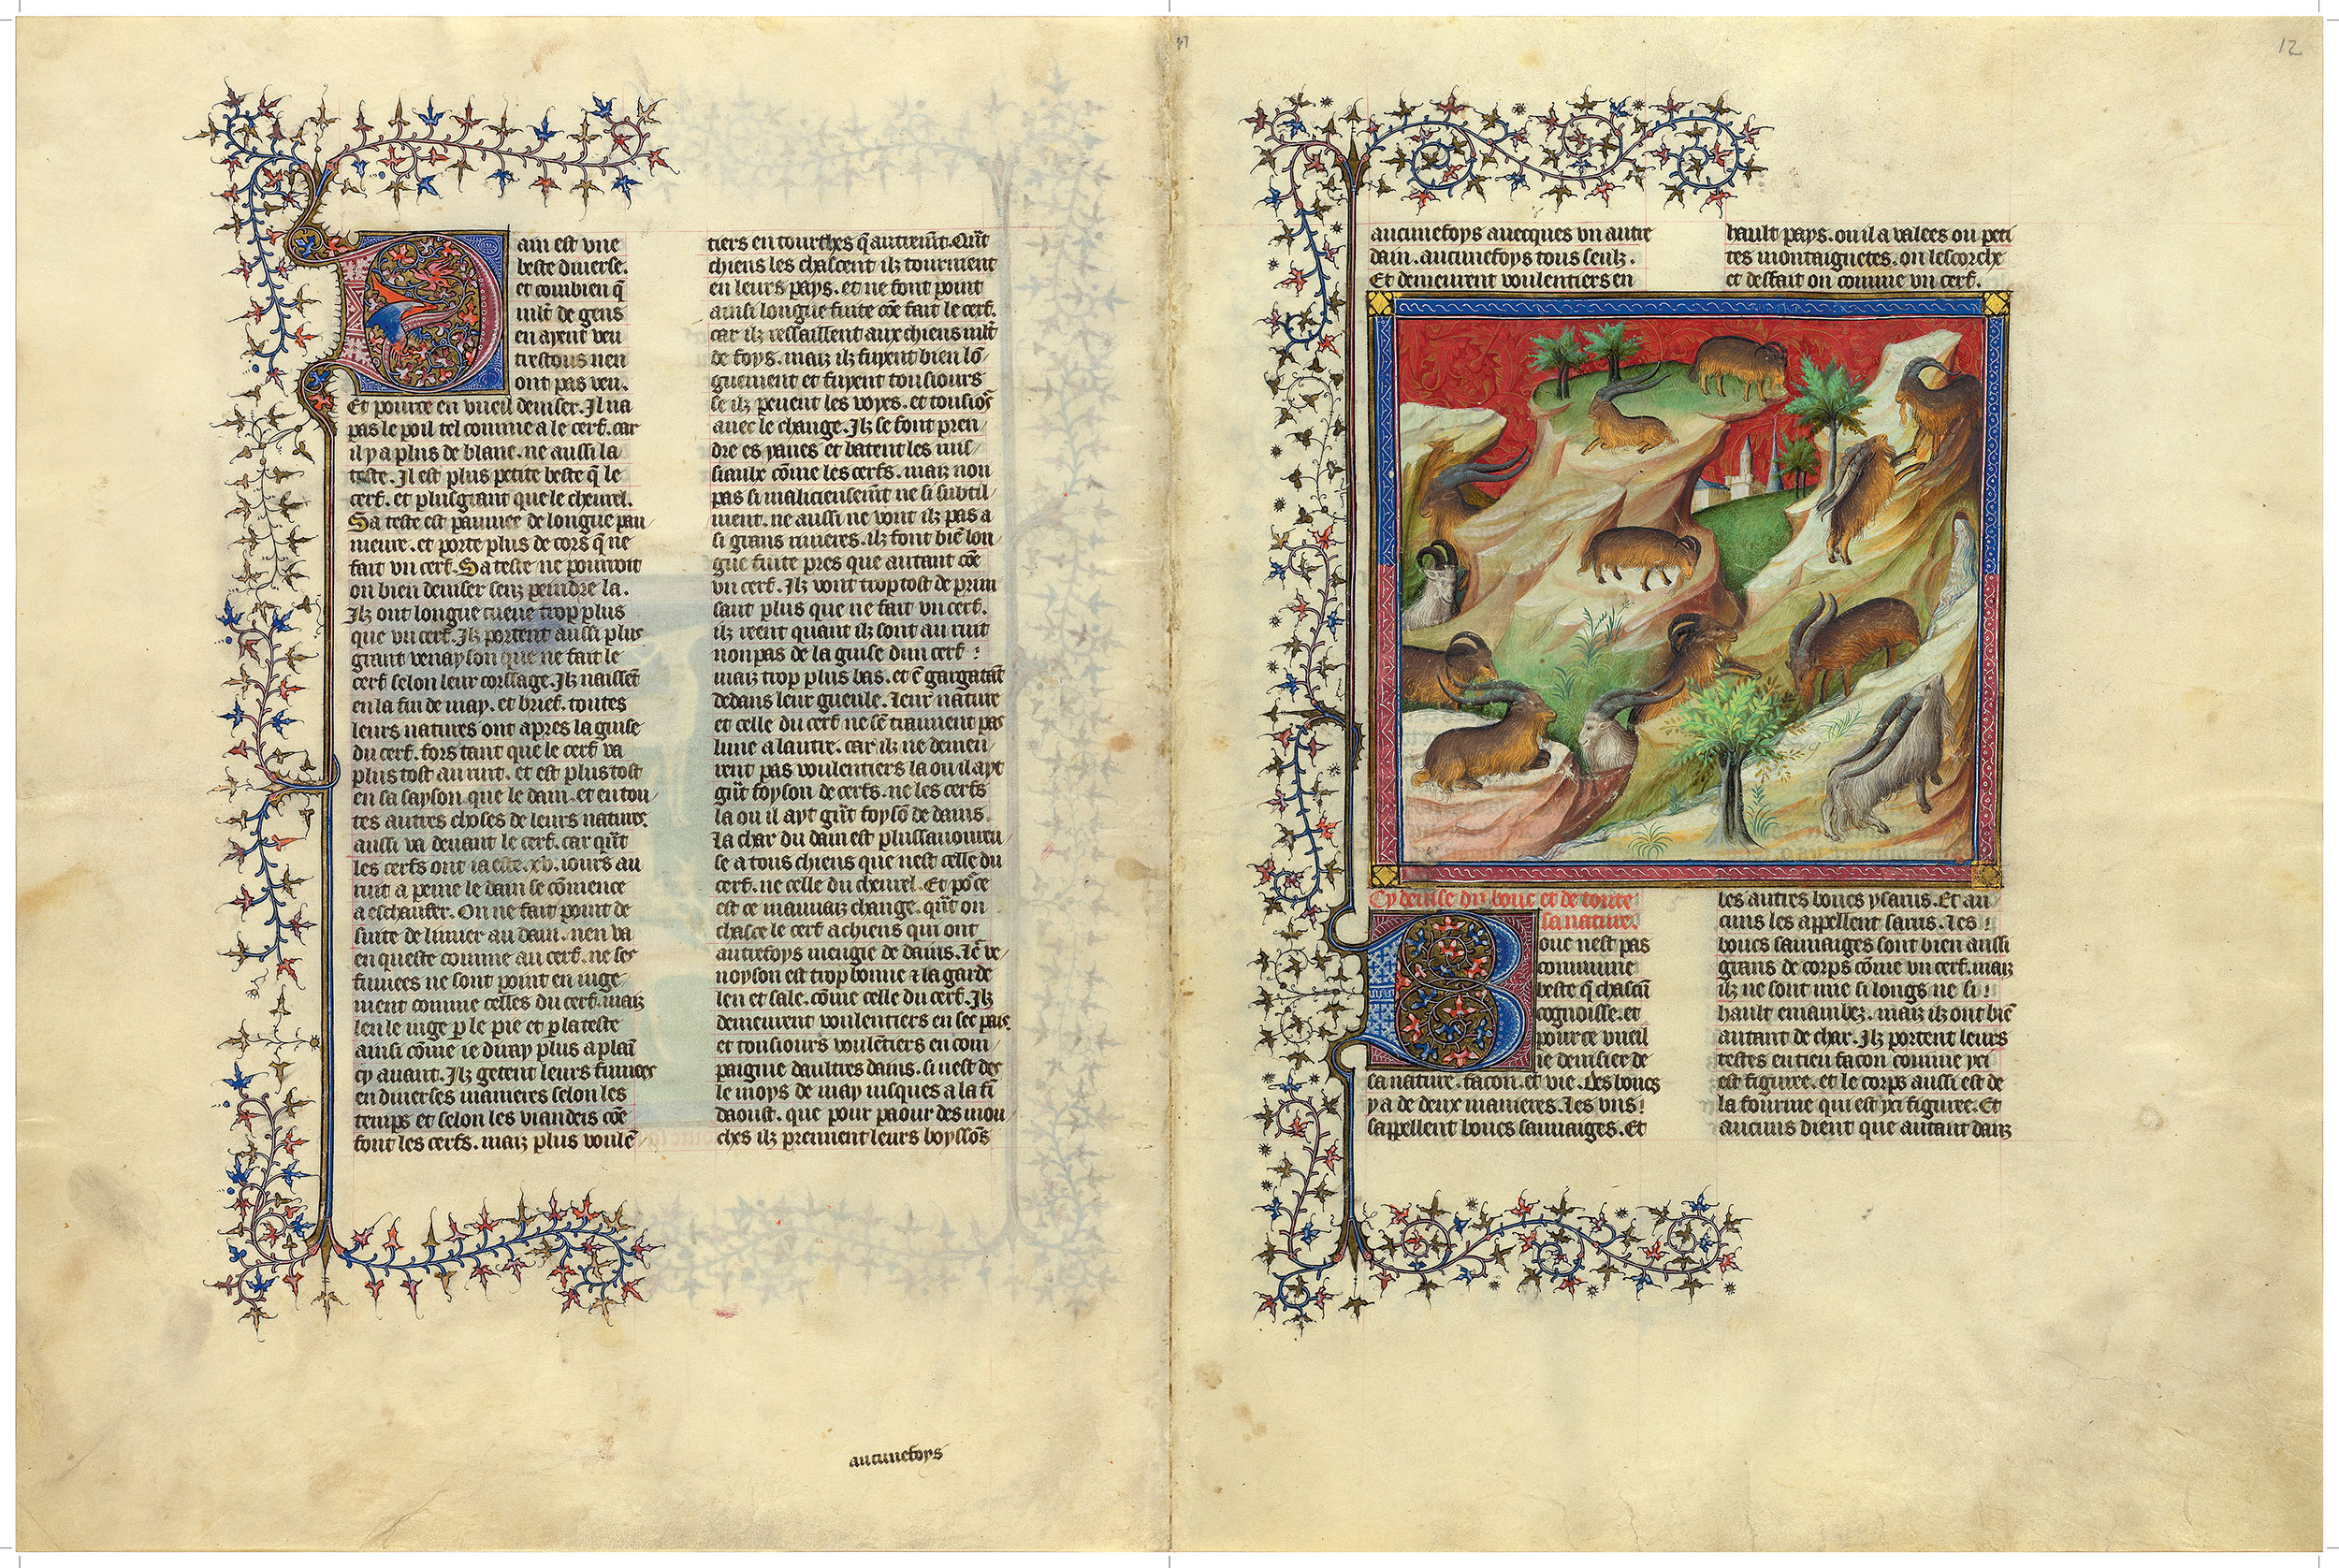 Dain est vne
beste diuerse.
et combien q̃
mlt̃ de gens
en ayent veu
trestous nen
ont pas veu.
Et pource en vueil deuiser. Il na
pas le poil tel comme a le cerf. car
il y a plus de blanc. ne aussi la
teste. Il est plus petite beste q̃ le
cerf. et plus grant que le cheurel.
Sa teste est paumee de longue pau/
meure. et porte plus de cors q̃ ne
fait vn cerf. Sa teste ne pourroit
on bien deuiser senz peindre la.
Ilz ont longue cueue trop plus
que vn cerf. Ilz portent aussi plus
grant venayson que ne fait le
cerf selon leur corssage. Ilz naissẽt
en la fin de may. et brief. toutes
leurs natures ont apres la guise
du cerf. fors tant que le cerf va
plus tost au ruit. et est plus tost
en sa sayson que le dain. et en tou/
tes autres choses de leurs natures
aussi va deuant le cerf. car qũt
les cerfs ont ia este .xv. iours au
ruit a peine le dain se cõmence
a eschaufer. On ne fait point de
suite de limier au dain. nen va
en queste comme au cerf. ne ses
fumees ne sont point en iuge/
ment comme celles du cerf. maiz
len le iuge p le pie et p la teste
ainsi cõme ie diray plus a plain
cy auant. Ilz getent leurs fumees
en diuerses manieres selon les
temps et selon les viandeis cõe
font les cerfs. maiz plus voulẽ/
tiers en tourches q̃ autremt̃. Qũt
chiens les chascent ilz tournent
en leurs pays. et ne font point
ainsi longue fuite cõe fait le cerf.
car ilz ressaillent aux chiens mlt̃
de foys. maiz ilz fuyent bien lõ/
guement et fuyent tousiours
se ilz peuent les voyes. et tousiors̃
auec le change. Ilz se font pren/
dre es yaues et batent les ruis/
siaulx cõme les cerfs. maiz non
pas si malicieusemt̃ ne si subtil/
ment. ne aussi ne vont ilz pas a
si grans riuieres. ilz font biẽ lon/
gue fuite pres que autant cõe
vn cerf. Ilz vont trop tost de prim
saut plus que ne fait vn cerf.
ilz reent quant ilz sont au ruit
non pas de la guise dun cerf :
maiz trop plus bas. et ẽ gargatãt
dedans leur gueule. Leur nature
et celle du cerf ne sẽ traiment pas
lune a lautre. car ilz ne demeu/
rent pas voulentiers la ou il ayt
gñt foyson de cerfs. ne les cerfs
la ou il ayt gñt foysõ de dains.
La char du dain est plus sauoureu/
se a tous chiens que nest celle du
cerf. ne celle du cheurel. Et põce
est ce mauuaiz change. qũt on
chasce le cerf a chiens qui ont
autrefoys mengie de dains. Lẽ ve/
noyson est trop bonne ⁊ la garde
len et sale. cõme celle du cerf. Ilz
demeurent voulentiers en sec pais.
et tousiours voulẽtiers en com/
paignie daultres dains. si nest des
le moys de may iusques a la fĩ
daoust. que pour paour des mou/
ches ilz prennent leurs boyssõs
aucunefoys
12
aucunefoys auecques vn autre
dain. aucunefoys tous seulz.
Et demeurent voulentiers en
hault pays. ou il a valees ou peti
tes montaignetes. on lescorche
et deffait on comme vn cerf.
Cy deuise du bouc et de toute
sa nature.
Bouc nest pas
commune
beste q̃ chascũ
cognoisse. et
pour ce vueil
ie deuisier de
sa nature. facon. et vie. Des boucs
y a de deux manieres. Les vns
sappellent boucs sauuaiges. Et
les autres boucs ysarus. Et au
cuns les appellent sarus. Les
boucs sauuaiges sont bien aussi
grans de corps cõme vn cerf. maiz
ilz ne sont mie si longs ne si
hault eniambez. maiz ilz ont biẽ
autant de char. Ilz portent leurs
testes en tieu facon comme yci
est figuree. et le corps aussi est de
la fourme qui est yci figuree. Et
aucuns dient que autant dans